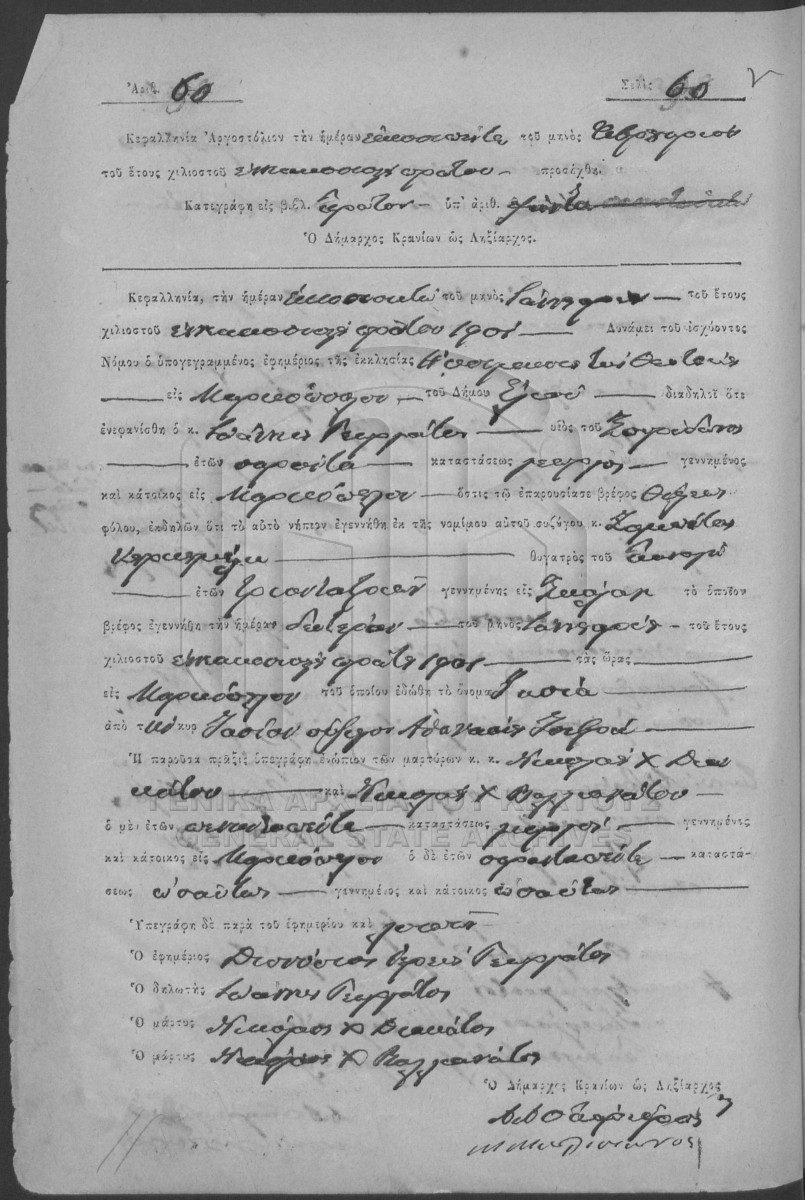 Ἀριθ. 60
Σελὶς 60
Κεφαλληνία Ἀργοστόλιον τὴν ἡμέραν εἰκοσιπέντε τοῦ μηνὸς Φεβρουαρίου
τοῦ ἔτους χιλιοστοῦ ἐννακοσιοστοῦ πρώτου — προσήχθη.
Κατεγράφη εἰς βιβλ. πρῶτον — ὑπ' ἀριθ.
Ὁ Δήμαρχος Κρανίων ὡς Ληξίαρχος.
Κεφαλληνία, τὴν ἡμέραν εἰκοσιοκτὼ τοῦ μηνὸς Ἰανουαρίου — τοῦ ἔτους
χιλιοστοῦ ἐννακοσιοστοῦ πρώτου 1901 — Δυνάμει τοῦ ἰσχύοντος
Νόμου ὁ ὑπογεγραμμένος ἐφημέριος τῆς ἐκκλησίας τῆς Θεοτόκου
— εἰς Μαρκόπουλον — τοῦ Δήμου — διαδηλοῖ ὅτι
ἐνεφανίσθη ὁ κ. Ἰωάννης Γεωργάτος — υἱὸς τοῦ Σπυρίδωνος
— ἐτῶν σαράντα — καταστάσεως γεωργὸς — γεννημένος
καὶ κάτοικος εἰς Μαρκόπουλον — ὅστις τῷ ἐπαρουσίασε βρέφος θήλεος
φύλου, ἐκδηλῶν ὅτι τὸ αὐτὸ νήπιον ἐγεννήθη ἐκ τῆς νομίμου αὐτοῦ συζύγου κ.
— θυγατρὸς τοῦ
— ἐτῶν τριάντα τριῶν γεννημένης εἰς Σκάλαν τὸ ὁποῖον
βρέφος ἐγεννήθη τὴν ἡμέραν δευτέραν — τοῦ μηνὸς Ἰανουαρίου — τοῦ ἔτους
χιλιοστοῦ ἐννακοσιοστοῦ πρώτου 1901 — τὰς ὥρας —
εἰς Μαρκόπουλον τοῦ ὁποίου ἐδώθη τὸ ὄνομα —
ἀπὸ τὴν κυρ σύζυγον Ἀθανασίου —
Ἡ παροῦσα πρᾶξις ὑπεγράφη ἐνώπιον τῶν μαρτύρων κ. κ. Νικολάου Χ
— καὶ Νικολάου Χ Βαλλιανάτου —
ὁ μὲν ἐτῶν πενῆντα πέντε — καταστάσεως γεωργοὶ — γεννημένος
καὶ κάτοικος εἰς Μαρκόπουλον ὁ δὲ ἐτῶν σαράντα πέντε — καταστά-
σεως ὡσαύτως — γεννημένος καὶ κάτοικος ὡσαύτως —
Ὑπεγράφη δὲ παρὰ τοῦ ἐφημερίου καὶ
Ὁ ἐφημέριος Διονύσιος Ἱερεὺς Γεωργάτος
Ὁ δηλωτὴς Ἰωάννης Γεωργάτος
Ὁ μάρτυς Νικόλαος Χ
Ὁ μάρτυς Νικόλαος Χ Βαλλιανάτος
Ὁ Δήμαρχος Κρανίων ὡς Ληξίαρχος
ΓΕΝΙΚΑ ΑΡΧΕΙΑ ΤΟΥ ΚΡΑΤΟΥΣ
GENERAL STATE ARCHIVES